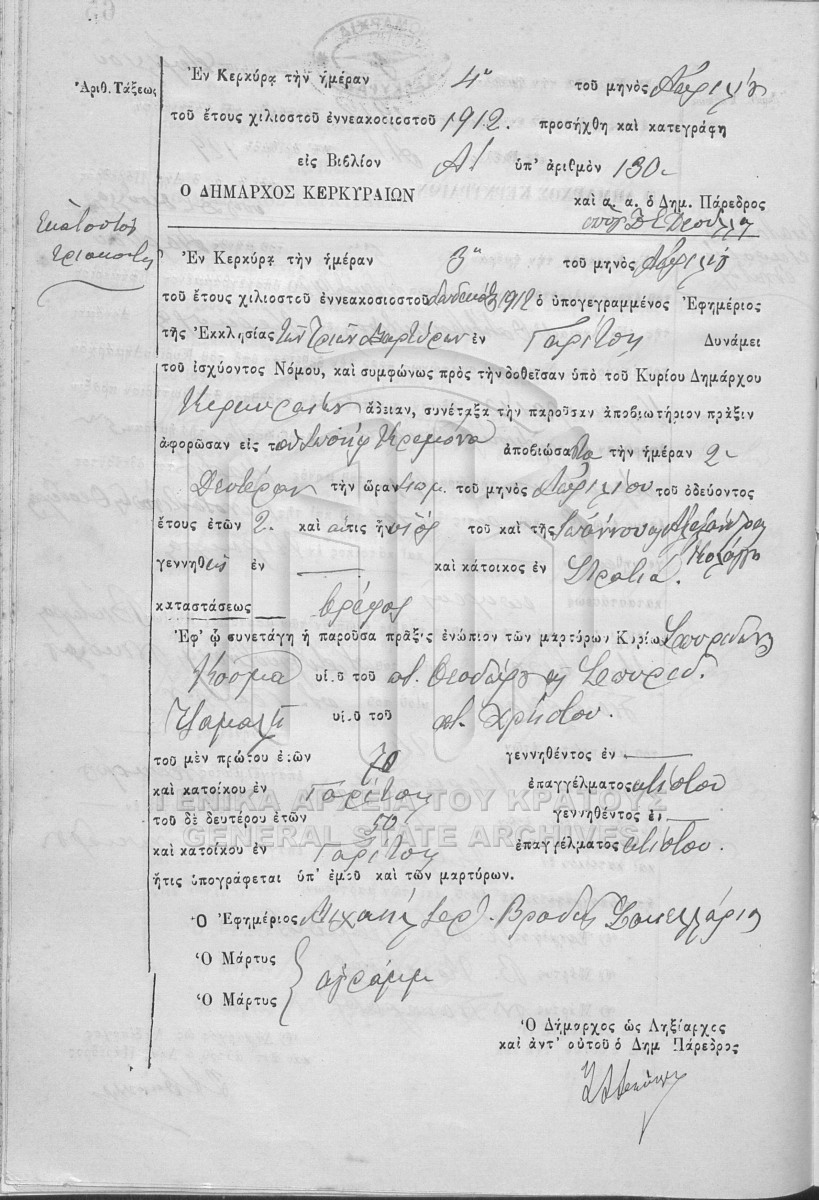 Ἀριθ. Τάξεως
Ἐν Κερκύρᾳ τὴν ἡμέραν 4ῃ τοῦ μηνὸς Ἀπριλίου
τοῦ ἔτους χιλιοστοῦ ἐννεακοσιοστοῦ 1912. προσήχθη καὶ κατεγράφη
εἰς Βιβλίον Α! ὑπ' ἀριθμὸν 130
Ο ΔΗΜΑΡΧΟΣ ΚΕΡΚΥΡΑΙΩΝ
καὶ α. α. ὁ Δημ. Πάρεδρος
Ἑκατοστὸς
τριακοστὸς
Ἐν Κερκύρᾳ τὴν ἡμέραν 3ῃ τοῦ μηνὸς Ἀπριλίου
τοῦ ἔτους χιλιοστοῦ ἐννεακοσιοστοῦ 1912 ὁ ὑπογεγραμμένος Ἐφημέριος
τῆς Ἐκκλησίας τῶν Τριῶν Μαρτύρων ἐν Γαρίτσῃ Δυνάμει
τοῦ ἰσχύοντος Νόμου, καὶ συμφώνως πρὸς τὴν δοθεῖσαν ὑπὸ τοῦ Κυρίου Δημάρχου
Κερκυραίων ἄδειαν, συνέταξα τὴν παροῦσαν ἀποβιωτήριον πρᾶξιν
ἀφορῶσαν εἰς τὸν Ἰωσὴφ Κρεμόνα ἀποβιώσαντα τὴν ἡμέραν 2
Δευτέραν τὴν ὥραν τοῦ μηνὸς Ἀπριλίου τοῦ ὁδεύοντος
ἔτους ἐτῶν 2. καὶ υἱὸς τοῦ καὶ τῆς Ἰωάννου Ἀλεξάνδρας
γεννηθεὶς ἐν — καὶ κάτοικος ἐν Στρατιά.
καταστάσεως βρέφος
Ἐφ' ᾧ συνετάγη ἡ παροῦσα πρᾶξις ἐνώπιον τῶν μαρτύρων Κυρίων Σπυρίδων
Κοσμᾶ υἱοῦ τοῦ ποτ. Θεοδώρου καὶ Σπυρίδ.
υἱοῦ τοῦ ποτ. Χρήστου.
τοῦ μὲν πρώτου ἐτῶν 70 γεννηθέντος ἐν —
καὶ κατοίκου ἐν Γαρίτσῃ ἐπαγγέλματος κτίστου
ΓΕΝΙΚΑ ΑΡΧΕΙΑ ΤΟΥ ΚΡΑΤΟΥΣ
τοῦ δὲ δευτέρου ἐτῶν 50 γεννηθέντος ἐν —
GENERAL STATE ARCHIVES
καὶ κατοίκου ἐν Γαρίτσῃ ἐπαγγέλματος κτίστου.
ἥτις ὑπογράφεται ὑπ' ἐμοῦ καὶ τῶν μαρτύρων.
Ὁ Ἐφημέριος Μιχαὴλ Ἱερ. Βραδῆς Σακελλάριος
Ὁ Μάρτυς
ἀγράμμ
Ὁ Μάρτυς
Ὁ Δήμαρχος ὡς Ληξίαρχος
καὶ ἀντ' αὐτοῦ ὁ Δημ Πάρεδρος